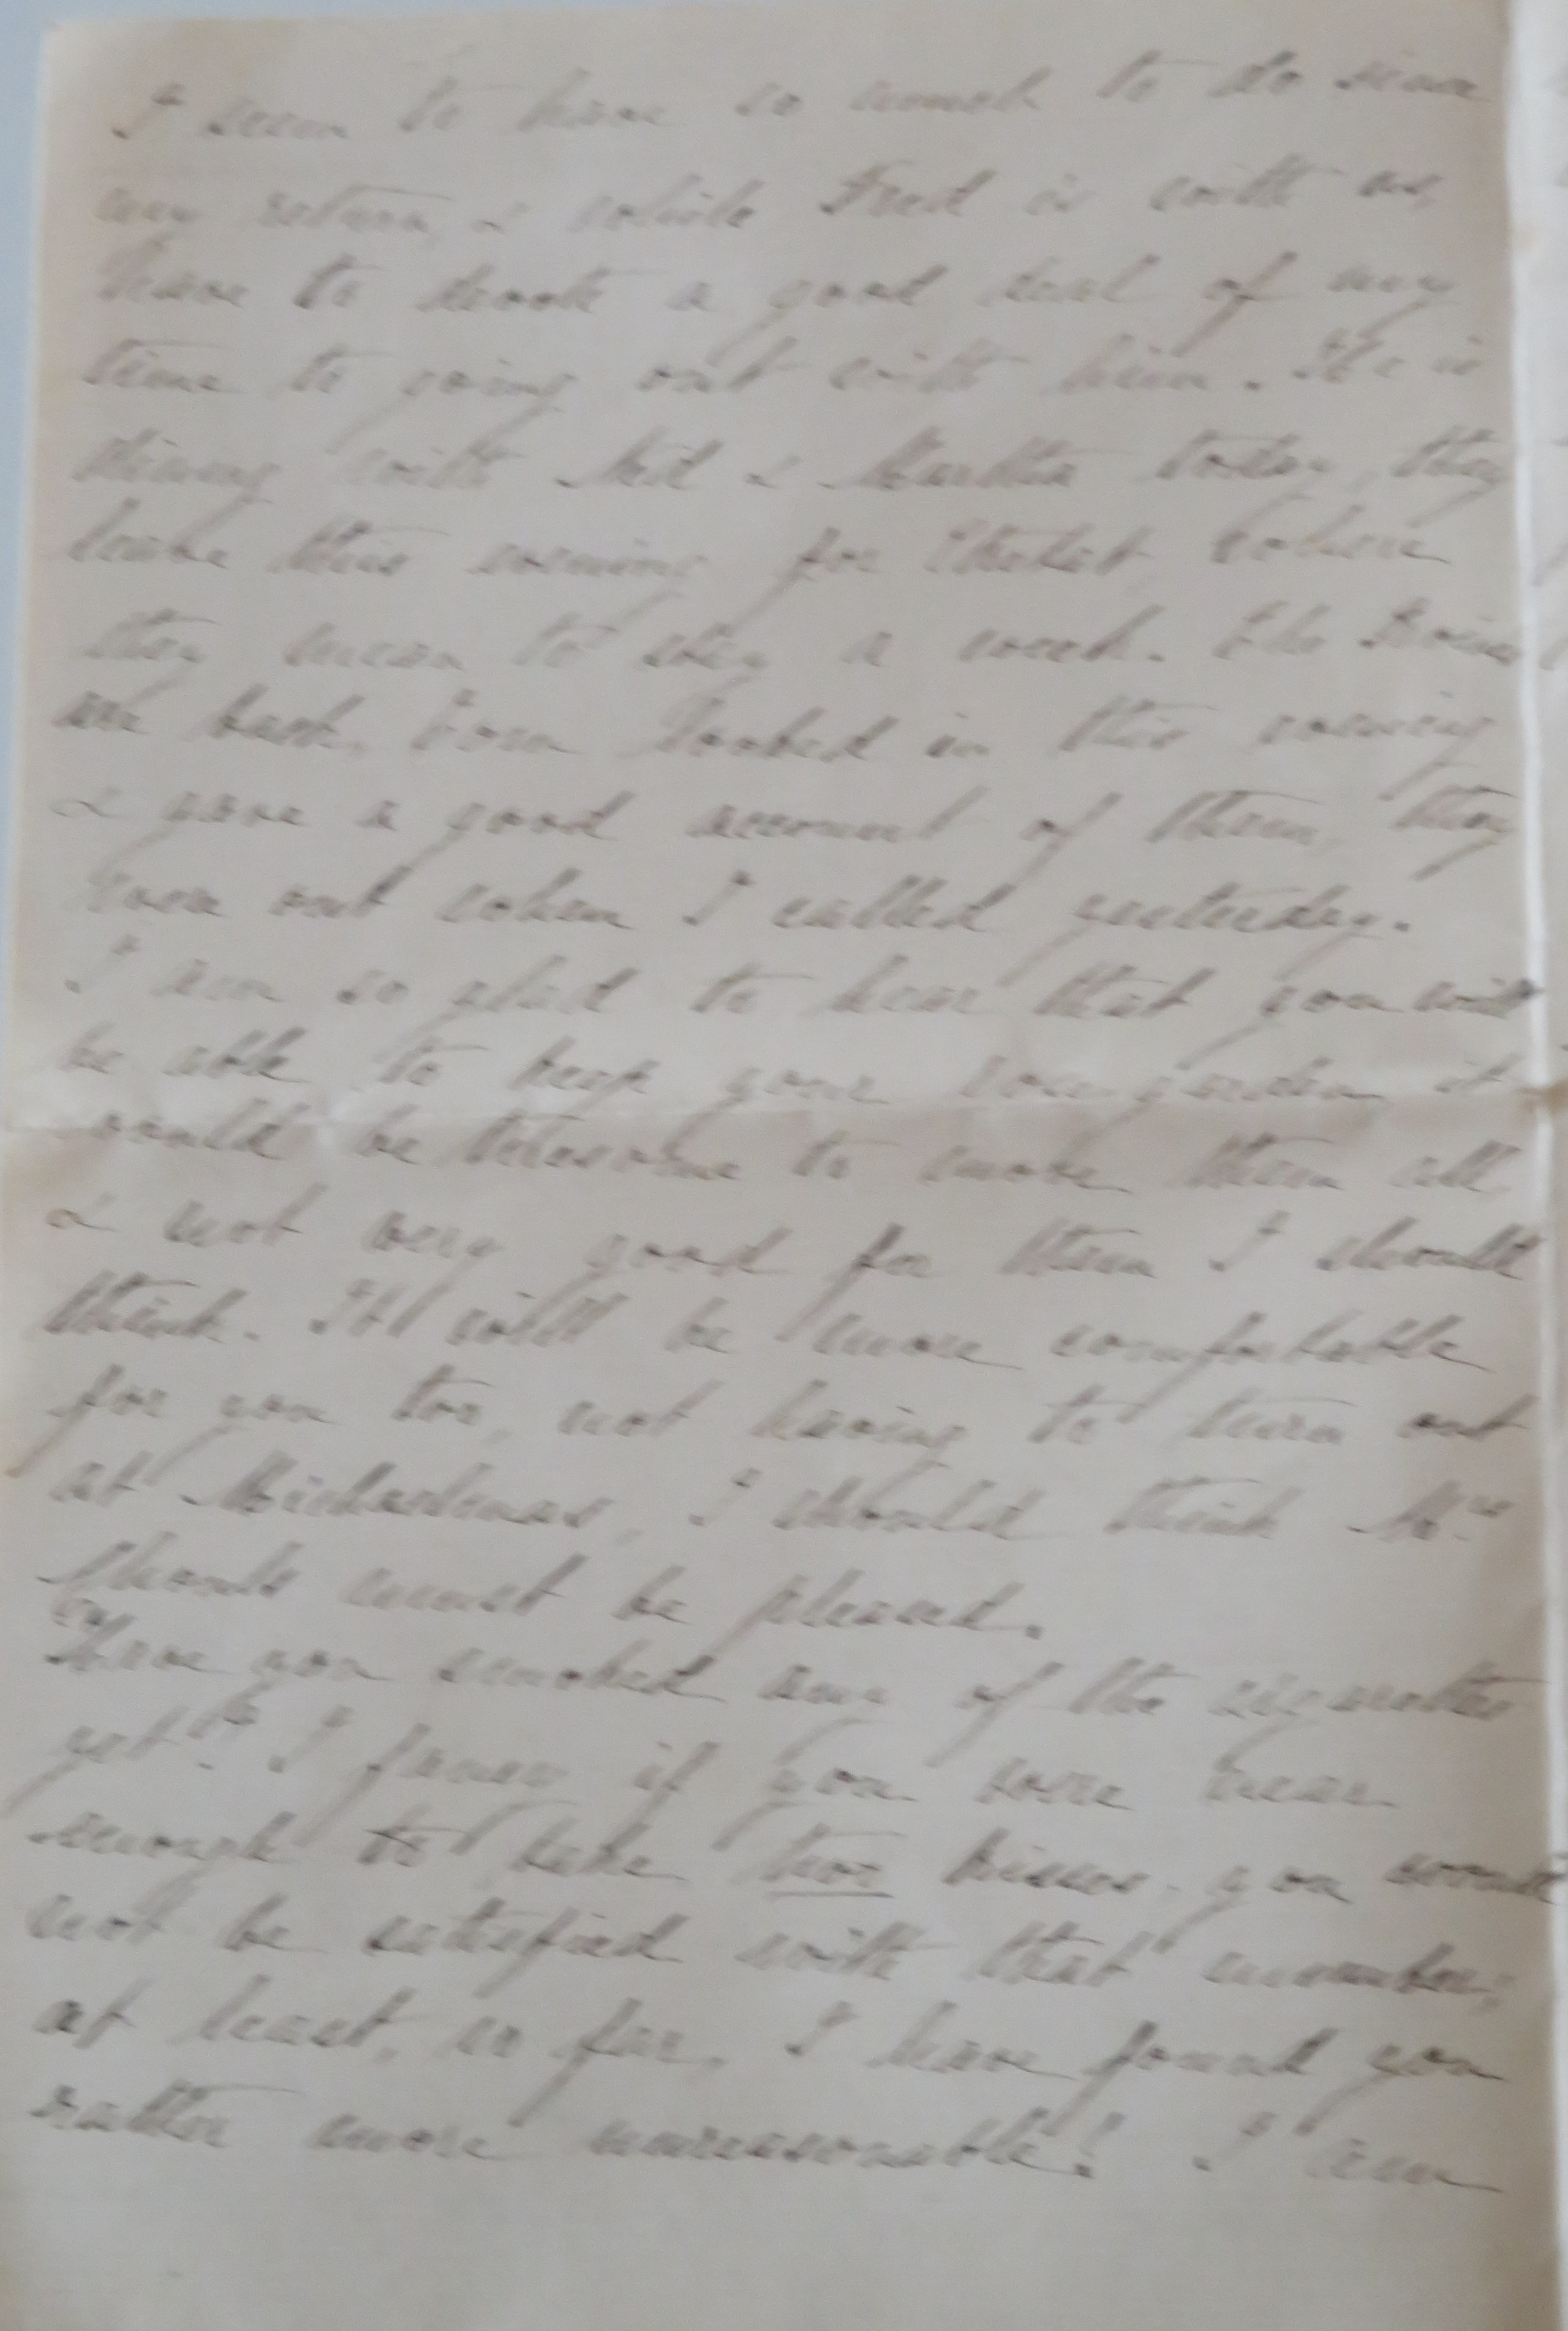 I seem to have so much to do since
my return, & while Fred is with us,
have to devote a good deal of my
time to going out with him. He is
dining with & Martha today, they
leave this evening for where
they mean to stay a week. The
are back, Tom looked in this evening
& gave a good account of them, they
were out when I called yesterday.
I am so glad to hear that you will
be able to keep your rose garden, it
would be tiresome to move them all,
& not very good for them I should
think. It will be more comfortable
for you too, not having to turn out
at Michaelmas, I should think Mrs
must be pleased.
Have you smoked any of the cigarettes
yet? I fancy if you were near
enough to take two kisses you would
not be satisfied with that number;
at least, so far, I have found you
rather more unreasonable! I am